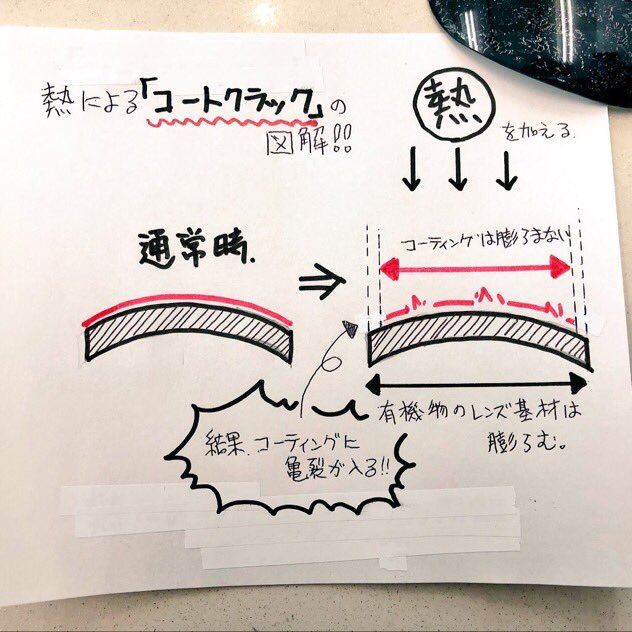 熱による「コートクラック」の
図解!!
熱
を加える.
通常時.
コーティングは膨らまない
有機物のレンズ基材は
膨らむ。
結果.コーティングに
亀裂が入る!!